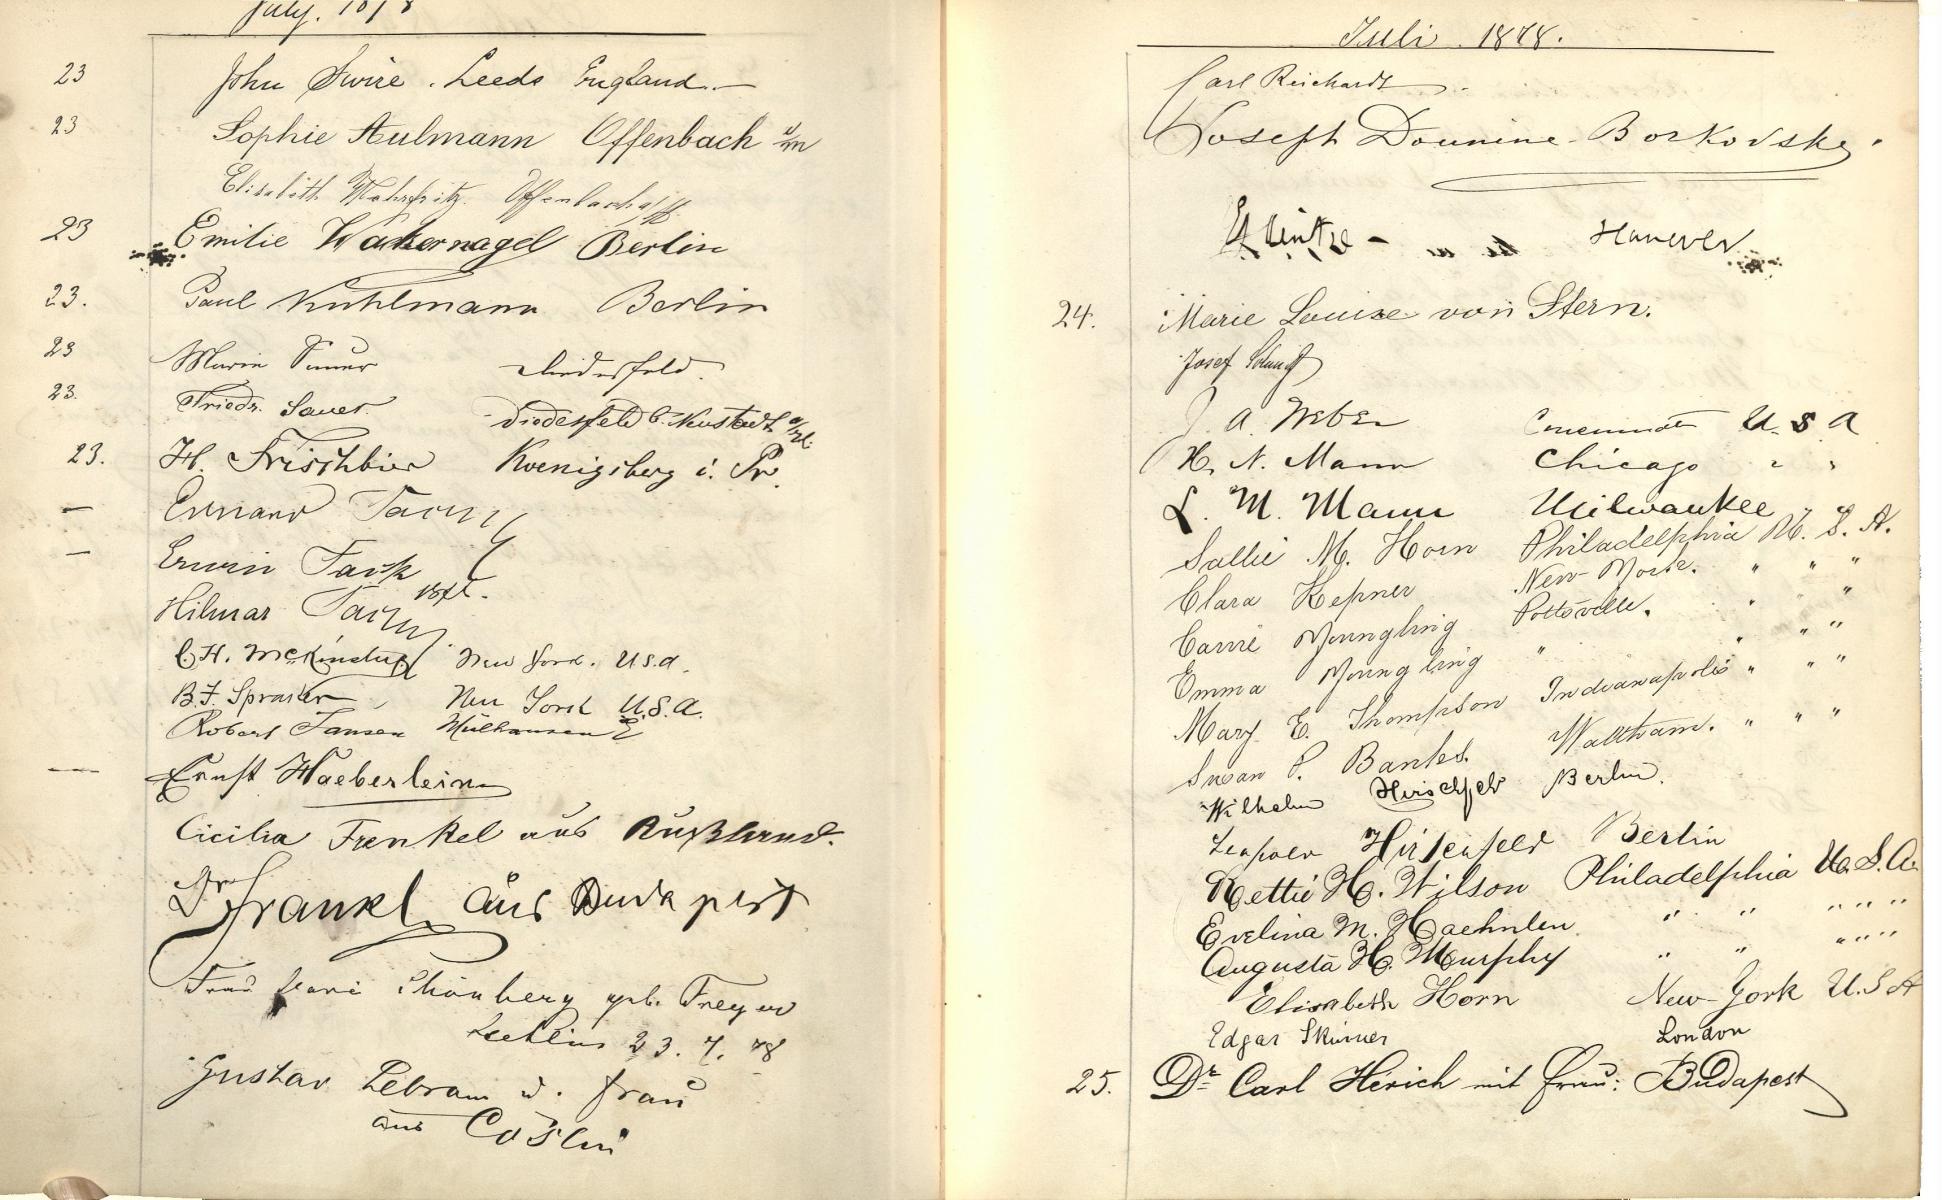 July. 1878
23 John Swire. Leeds England.
23 Sophie Aulmann Offenbach a/m
Elisabeth Offenbach a/M.
23 Emilie Wakernagel Berlin
23. Paul Kuhlmann Berlin
23 Diedesfeld.
23. Friedr. Sauer. Diedesfeld b. Neustadt a/H.
23. H. Frischbier Koenigsberg i. Pr.
—
— Erwin
Hilmar
C. H. McKinstry New York. U.S.A.
B. F. Spraker New York U.S.A.
Robert Jansen Mülhausen E
— Ernst Haeberlein
Cicilia Frenkel aus Rußland.
Dr Frankl aus Budapest
Frau Marie Schönberg geb. Freyer
23. 7. 78
Gustav Lebram u. Frau
aus Cöslin
Juli. 1878.
Carl Reichardt
Joseph Dounine-Borkovsky.
Hanover
24. Marie Louise von Stern.
Josef Schmid
J. A. Weber Cincinnati U.S.A
H. N. Mann Chicago " "
L. M. Mann Milwaukee " "
Sallie M. Horn Philadelphia U. S. A.
Clara Kepner New-York. " " "
Carrie Youngling Pottsville. " "
Emma Youngling " " " "
Mary E. Thompson Indianapolis " " "
Susan P. Banks. Waltham. " " "
Wilhelm Hirschfeld Berlin.
Leopold Hirschfeld Berlin
Nettie H. Wilson Philadelphia U.S.A.
Evelina M. Haehnlen " " " " "
Augusta H. Murphy " " " " "
Elisabeth Horn New-York U.S.A
Edgar Skinner London
25. Dr. Carl Hirich mit Frau: Budapest